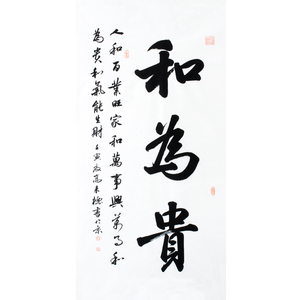 和為貴
人和百業旺家和萬事興万事和
為貴和氣能生財壬寅